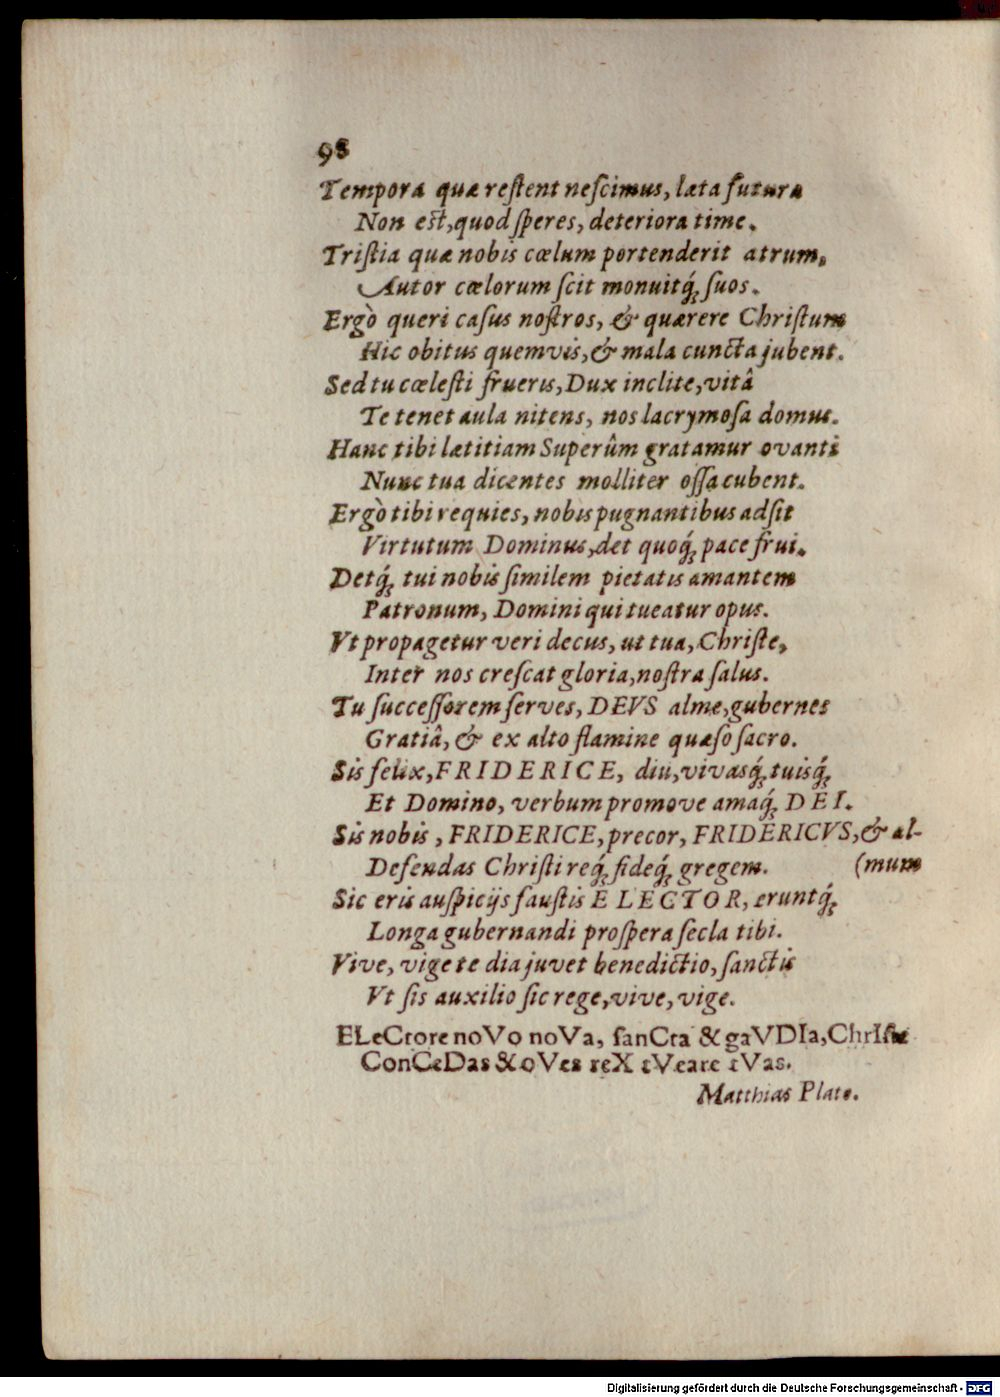 98
Tempora quæ reſtent neſcimus, læta futura
Non eſt, quod ſperes, deteriora time.
Triſtia quæ nobis cœlum portenderit atrum,
Autor cœlorum ſcit monuitq́ꝫ ſuos.
Ergò queri caſus noſtros, & quærere Chriſtum
Hic obitus quemvis, & mala cuncta jubent.
Sed tu cœleſti frueris, Dux inclite, vitâ
Te tenet aula nitens, nos lacrymoſa domus.
Hanc tibi lætitiam Superûm gratamur ovanti
Nunc tua dicentes molliter oſſa cubent.
Ergò tibi requies, nobis pugnantibus adſit
Virtutum Dominus, det quoq́ꝫ pace frui.
Detq́ꝫ tui nobis ſimilem pietatis amantem
Patronum, Domini qui tueatur opus.
Vt propagetur veri decus, ut tua, Chriſte,
Inter nos creſcat gloria, noſtra ſalus.
Tu ſucceſſorem ſerves, DEVS alme, gubernes
Gratiâ, & ex alto flamine quæſo ſacro.
Sis felix, FRIDERICE, diu, vivasq́ꝫ tuisq́ꝫ
Et Domino, verbum promove amaq́ꝫ DEI.
Sis nobis, FRIDERICE, precor, FRIDERICVS, & al-
Defendas Chriſti req́ꝫ fideq́ꝫ gregem. (mum
Sic eris auſpicijs fauſtis ELECTOR, eruntq́ꝫ
Longa gubernandi proſpera ſecla tibi.
Vive, vige te dia juvet benedictio, ſanctis
Vt ſis auxilio ſic rege, vive, vige.
ELeCtore noVo noVa, ſanCta & gaVDIa, ChrIſte
ConCeDas & oVes reX tVeare tVas.
Matthias Plato.
Digitalisierung gefördert durch die Deutsche Forschungsgemeinschaft - DFG